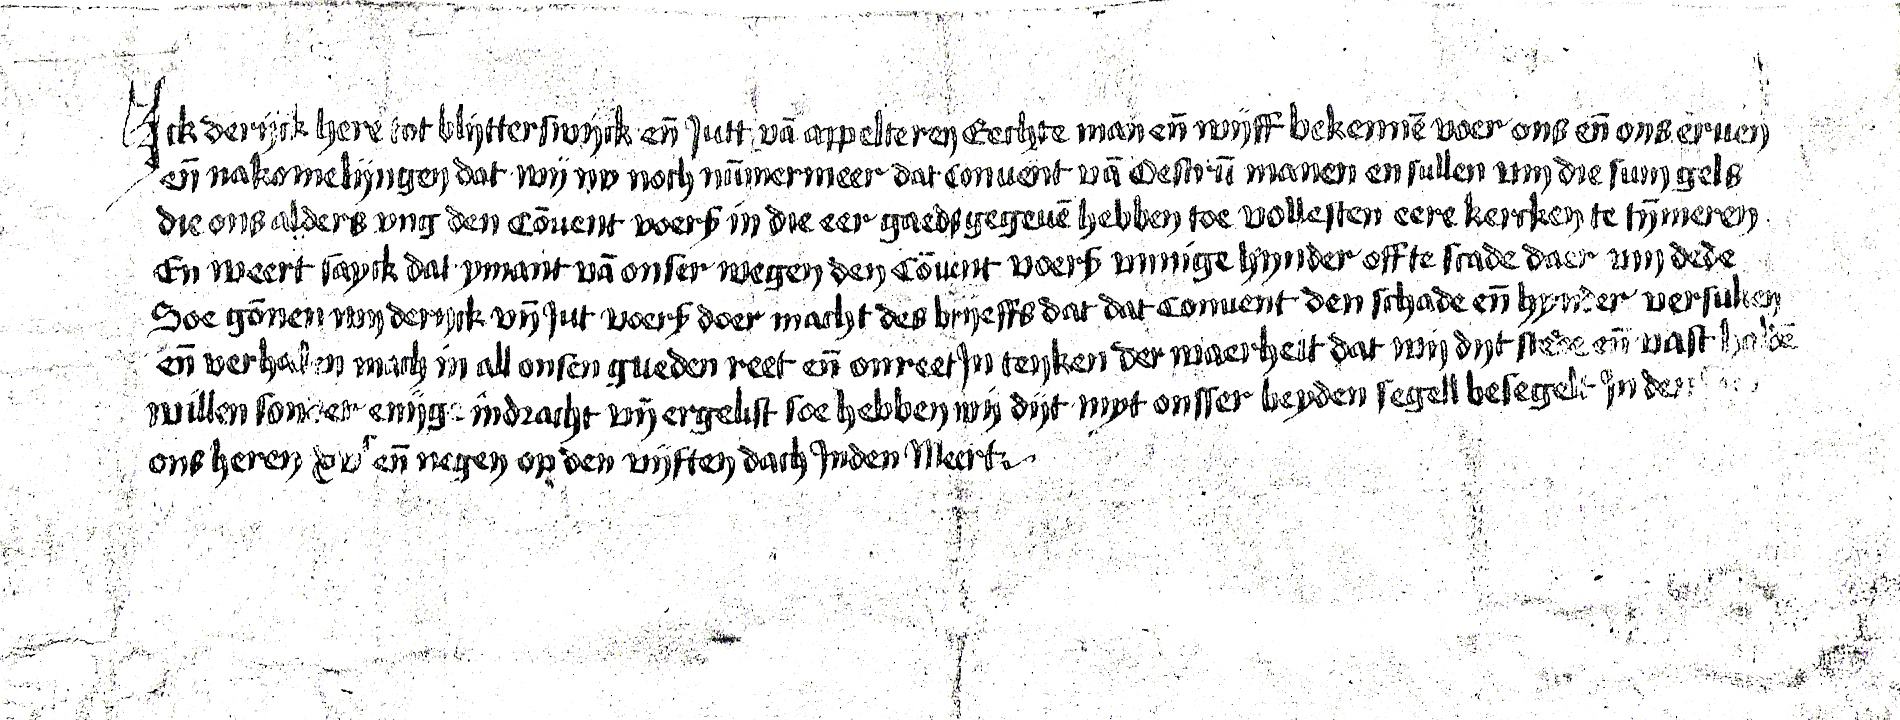 Ick derijck here tot blijtterswijck en̄ Jutt vā appelteren Eechte man en̄ wijff bekennē voer ons en̄ ons eruen
en̄ nakomelijngen dat wij nv noch nūmermeer dat Conuent vā Oestrū manen en sullen vm die sum gels
die ons alders vng den Cōuent voerß in die eer gaeds gegeuē hebben toe vollesten eere kercken te tȳmeren
En weert sayck dat ymant vā onser wegen den Cōuent voerß ennige hijnder off te scade daer vm dede
Soe gōnen wij derijck vn̄ Jut voerß doer macht des brijeffs dat dat Conuent den schade en̄ hynder versuken
en̄ verhalen mach in all onsen gueden reet en̄ onreet In teyken der waerheit dat wij dijt stede en̄ vast haldē
willen sonder enijg indracht vn̄ ergelist soe hebben wij dijt myt onsser beyden segell besegelt In den
ons heren xvᶜ en̄ negen op den vijften dach Inden Meert